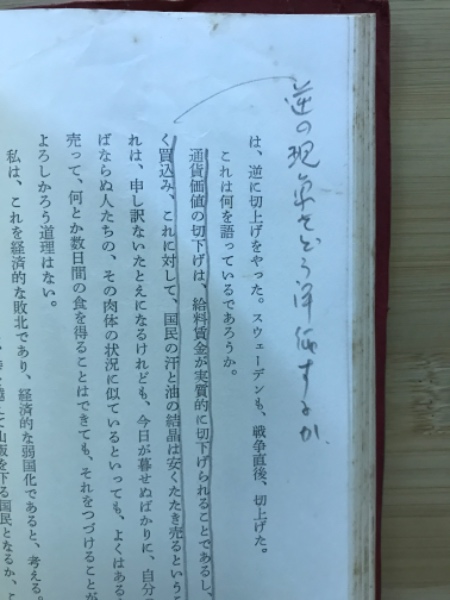 逆の現象をどう評価するか
は、逆に切上げをやった。スウェーデンも、戦争直後、切上げた。
これは何を語っているであろうか。
通貨価値の切下げは、給料賃金が実質的に切下げられることであるし、
く買込み、これに対して、国民の汗と油の結晶は安くたたき売るというこ
れは、申し訳ないたとえになるけれども、今日が暮せぬばかりに、自分
ばならぬ人たちの、その肉体の状況に似ているといっても、よくはある
売って、何とか数日間の食を得ることはできても、それをつづけることが
よろしかろう道理はない。
私は、これを経済的な敗北であり、経済的な弱国化であると、考える。
越えて山坂を下る国民となるか、